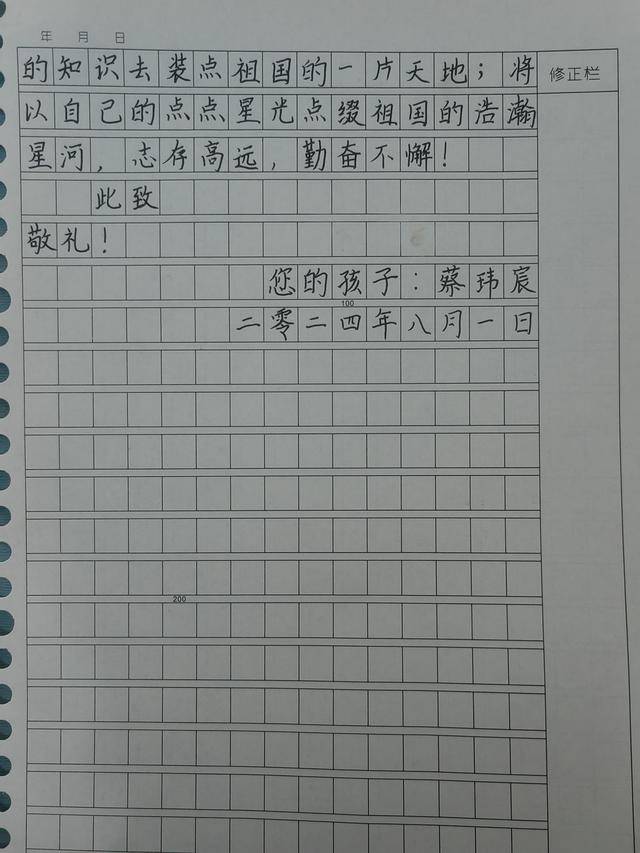 年 月 日
的知识去装点祖国的一片天地；将
修正栏
以自己的点点星光点缀祖国的浩瀚
星河，志存高远，勤奋不懈！
此致
敬礼！
您的孩子：蔡玮宸
100
二零二四年八月一日
200